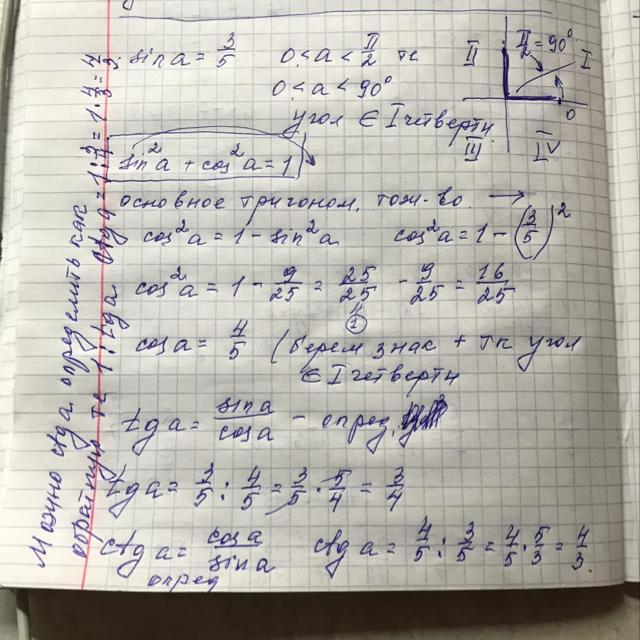 sin a = 3/5   0 < a < π/2 те
0 < a < 90°
угол ∈ I четверти
II   π/2 = 90°   I
0
III   IV
sin²a + cos²a = 1
основное тригоном. тож-во. →
cos²a = 1 - sin²a   cos²a = 1 - (3/5)²
cos²a = 1 - 9/25 = 25/25 - 9/25 = 16/25
1
cos a = 4/5   (берем знак + тк угол
∈ I четверти
tg a = sin a/cos a - опред.
tg a = 3/5 : 4/5 = 3/5 · 5/4 = 3/4
ctg a = cos a/sin a   ctg a = 4/5 : 3/5 = 4/5 · 5/3 = 4/3.
опред
Можно ctg a определить как
обратную те 1 : tg a   ctg a = 1 : 3/4 = 1 · 4/3 = 4/3.